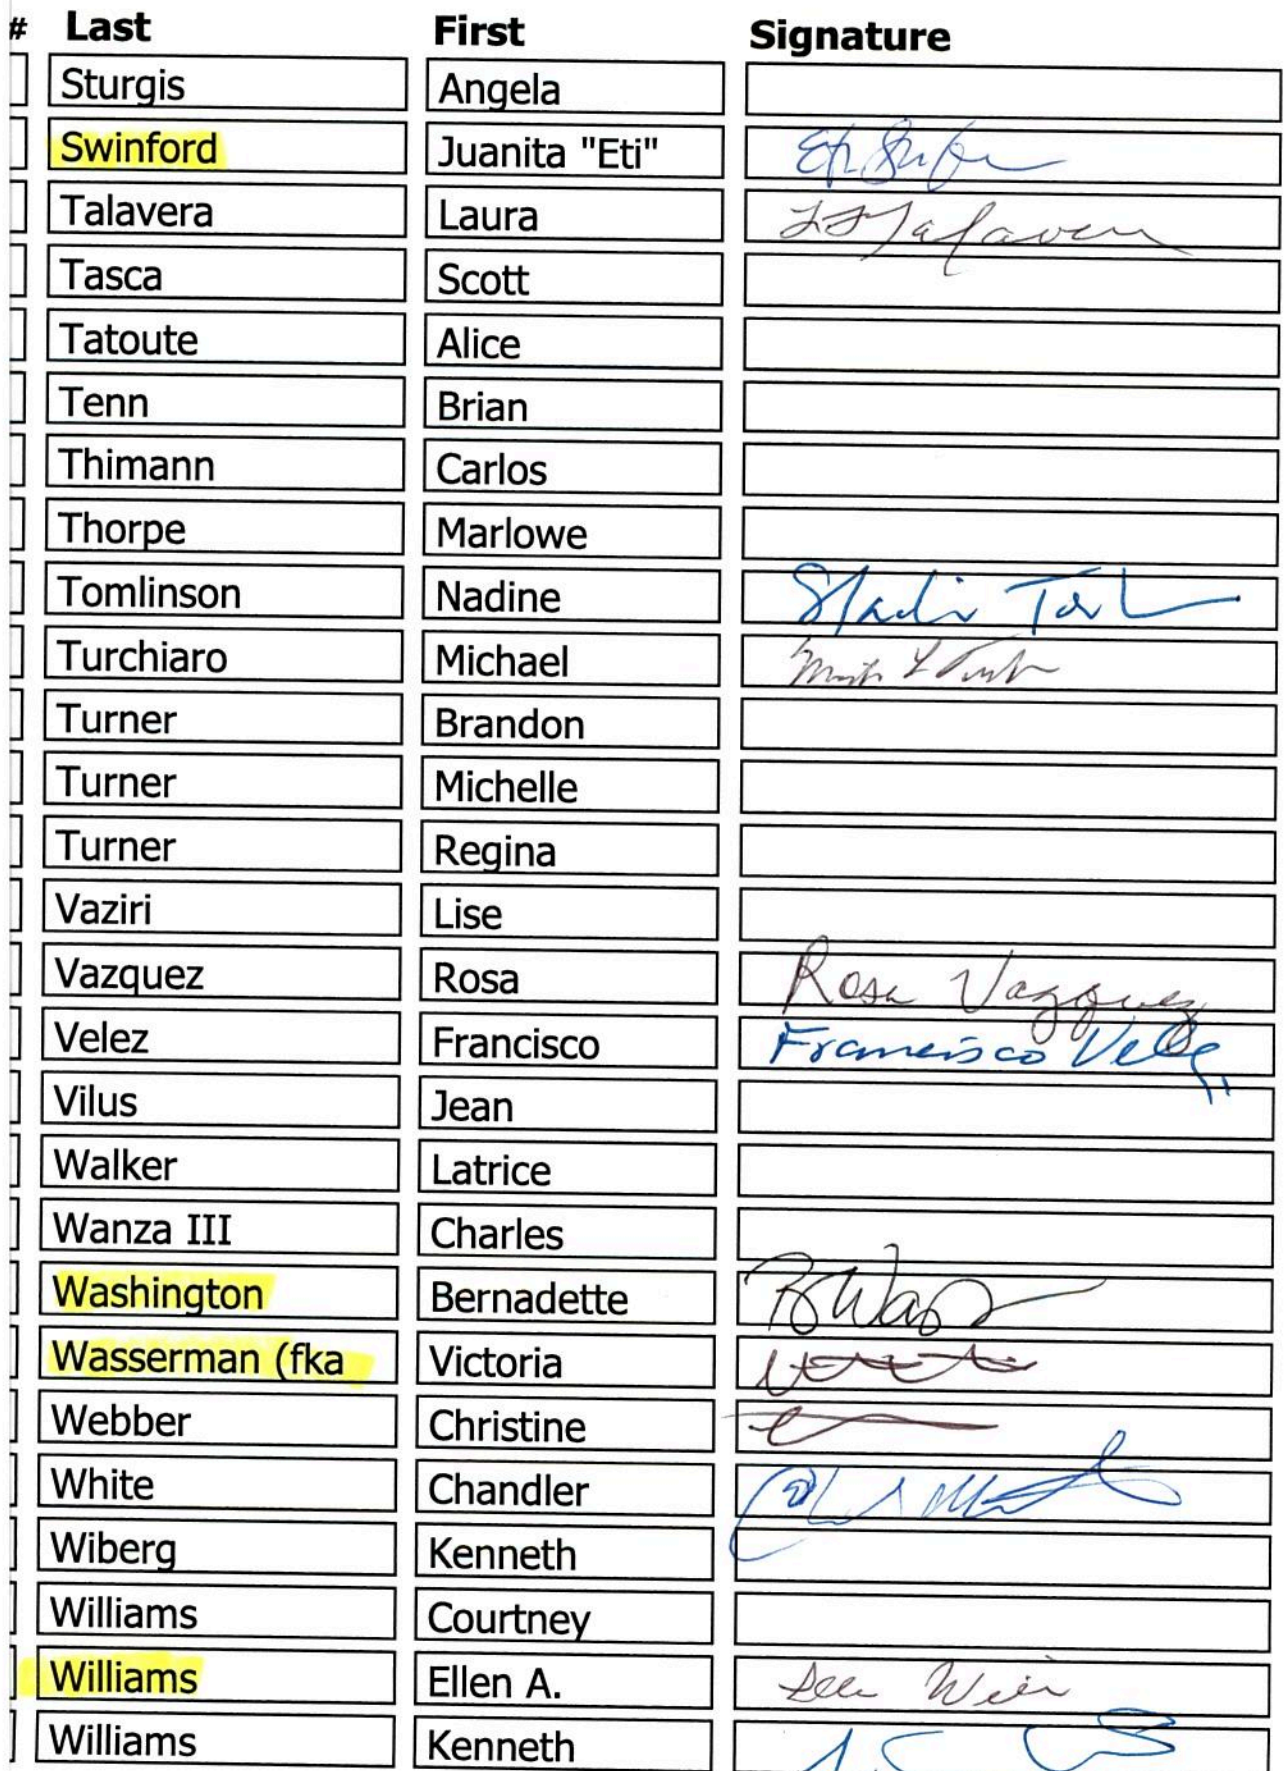 # Last First Signature
Sturgis Angela
Swinford Juanita "Eti"
Talavera Laura
Tasca Scott
Tatoute Alice
Tenn Brian
Thimann Carlos
Thorpe Marlowe
Tomlinson Nadine
Turchiaro Michael
Turner Brandon
Turner Michelle
Turner Regina
Vaziri Lise
Vazquez Rosa Rosa Vazquez
Velez Francisco Francisco Velez
Vilus Jean
Walker Latrice
Wanza III Charles
Washington Bernadette
Wasserman (fka Victoria
Webber Christine
White Chandler
Wiberg Kenneth
Williams Courtney
Williams Ellen A.
Williams Kenneth